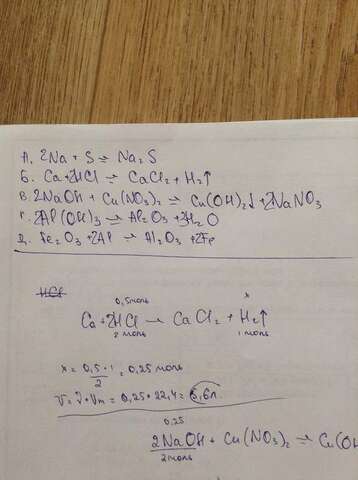 А. 2Na + S ⇌ Na₂S
Б. Ca + 2HCl ⇌ CaCl₂ + H₂↑
В. 2NaOH + Cu(NO₃)₂ ⇌ Cu(OH)₂↓ + 2NaNO₃
Г. 2Al(OH)₃ ⇌ Al₂O₃ + 3H₂O
Д. Fe₂O₃ + 2Al ⇌ Al₂O₃ + 2Fe
HCl
0,5моль x
Ca + 2HCl → CaCl₂ + H₂↑
2 моль 1 моль
x = 0,5 · 1 / 2 = 0,25 моль
V = ν · Vm = 0,25 · 22,4 = 5,6л.
0,25
2NaOH + Cu(NO₃)₂ ⇌ Cu(OH
2моль